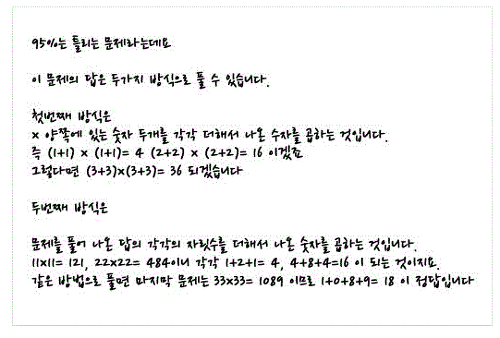 95%는 틀리는 문제라는데요
이 문제의 답은 두가지 방식으로 풀 수 있습니다.
첫번째 방식은
x 양쪽에 있는 숫자 두개를 각각 더해서 나온 수자를 곱하는 것입니다.
즉 (1+1) x (1+1)= 4 (2+2) x (2+2)= 16 이겠죠
그렇다면 (3+3)x(3+3)= 36 되겠습니다
두번째 방식은
문제를 풀어 나온 답의 각각의 자릿수를 더해서 나온 숫자를 곱하는 것입니다.
11x11= 121, 22x22= 484이니 각각 1+2+1= 4, 4+8+4=16 이 되는 것이지요.
같은 방법으로 풀면 마지막 문제는 33x33= 1089 이므로 1+0+8+9= 18 이 정답입니다